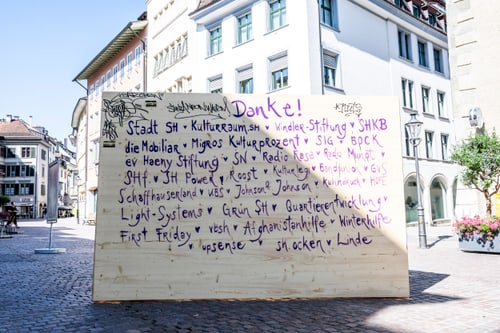 Danke!
Stadt SH ♥ Kulturraum.sh ♥ Windler-Stiftung ♥ SHKB
die Mobiliar ♥ Migros Kulturprozent ♥ SIG ♥ BPCK
ev Haeny Stiftung ♥ SN ♥ Radio Rasa ♥ Radio Munot ♥
SHf ♥ SH Power ♥ Roost ♥ Kulturleg ♥ ♥ GVS
Schaffhauserland ♥ WBS ♥ Johnson & Johnson ♥ ♥ HOPE
Light-Systems ♥ Grün SH ♥ Quartierentwicklung ♥
First Friday ♥ vbsh ♥ Afghanistanhilfe ♥ Winterhilfe
♥ upsense ♥ sh_ocken ♥ Linde